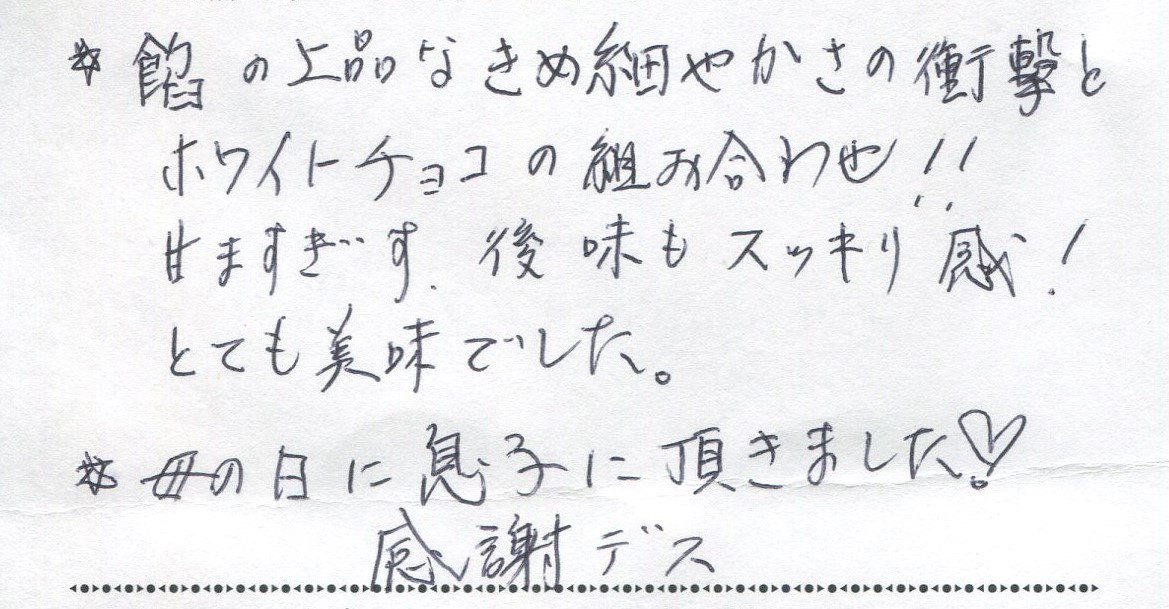 ☆ 餡の上品なきめ細やかさの衝撃と
ホワイトチョコの組み合わせ!!
甘ますぎず、後味もスッキリ感!
とても美味でした。
☆ 母の日に息子に頂きました♡
感謝デス